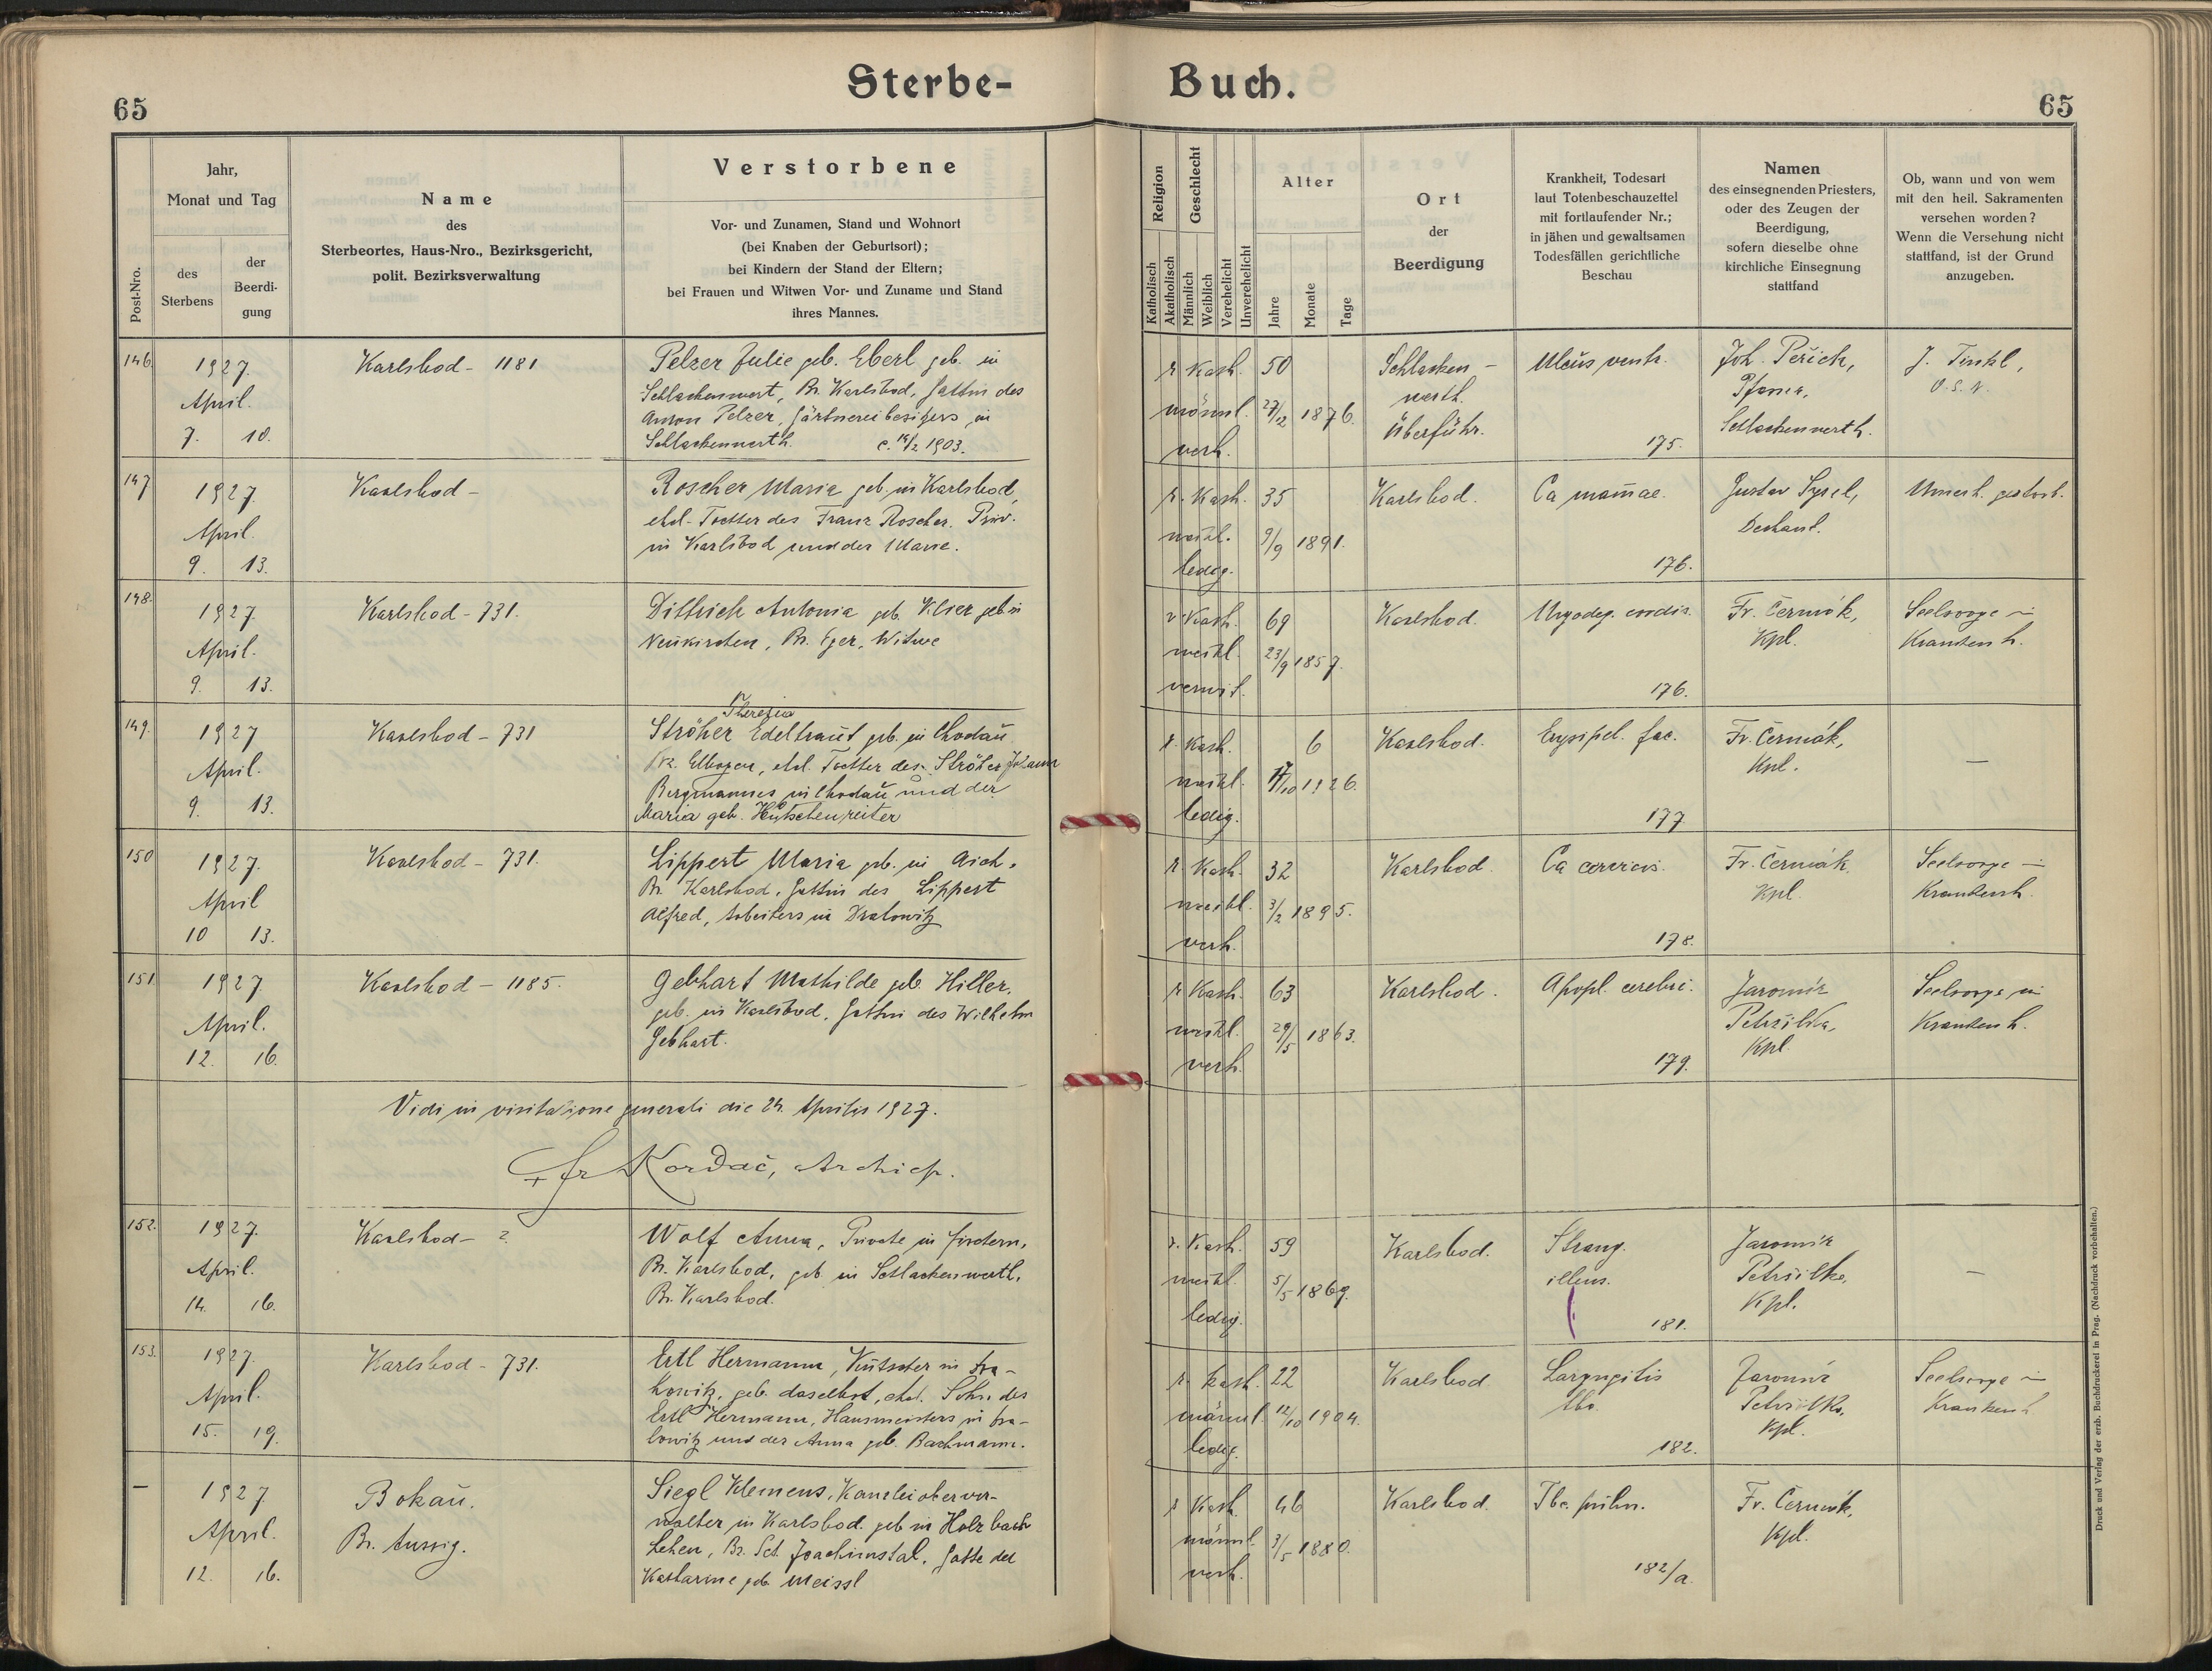 Sterbe- Buch.
65
65
Post-Nro.
Jahr,
Monat und Tag
des
Sterbens
der
Beerdi-
gung
Name
des
Sterbeortes, Haus-Nro., Bezirksgericht,
polit. Bezirksverwaltung
Verstorbene
Vor- und Zunamen, Stand und Wohnort
(bei Knaben der Geburtsort);
bei Kindern der Stand der Eltern;
bei Frauen und Witwen Vor- und Zuname und Stand
ihres Mannes.
Religion
Katholisch
Akatholisch
Geschlecht
Männlich
Weiblich
Verehelicht
Unverehelicht
Alter
Jahre
Monate
Tage
Ort
der
Beerdigung
Krankheit, Todesart
laut Totenbeschauzettel
mit fortlaufender Nr.;
in jähen und gewaltsamen
Todesfällen gerichtliche
Beschau
Namen
des einsegnenden Priesters,
oder des Zeugen der
Beerdigung,
sofern dieselbe ohne
kirchliche Einsegnung
stattfand
Ob, wann und von wem
mit den heil. Sakramenten
versehen worden?
Wenn die Versehung nicht
stattfand, ist der Grund
anzugeben.
146.
1927.
April.
7. 10.
Karlsbad - 1181
Pelzer Julie geb. Eberl geb. in
Schlackenwert, Bz. Karlsbad, Gattin des
Anton Pelzer, Gärtnereibesitzers in
Schlackenwerth. c. 14/2 1903.
r. Kath. 50
männl. 27/12 1876.
verh.
Schlacken-
werth.
Überführ.
Ulcus ventr.
175.
Joh. Peřich,
Pfarrer,
Schlackenwerth.
J. Tinkl,
147
1927.
April.
9. 13.
Karlsbad -
Roscher Maria geb. in Karlsbad,
ehel. Tochter des Franz Roscher. Priv.
in Karlsbad und der Marie.
r. Kath. 35
weibl. 9/9 1891.
ledig.
Karlsbad.
Ca mam̄ae.
176.
Gustav Sysel,
Dechant.
148.
1927.
April.
9. 13.
Karlsbad - 731.
Dittrich Antonia geb. Klier geb in
Neukirchen, Bz. Eger, Witwe
r. Kath. 69
weibl. 23/9 1857.
verwit.
Karlsbad.
Myodeg. cordis.
176.
Fr. Čermák,
Kpl.
Seelsorge in
Krankenh.
149.
1927
April.
9. 13.
Karlsbad - 731
Theresia
Ströher Edeltraut geb. in Chodau
Bz. Elbogen, ehel. Tochter des Ströher Johann
Bergmannes in Chodau und der
Maria geb. Hutschenreiter
r. Kath. 6
weibl. 17/10 1926.
ledig.
Karlsbad.
Erysipel. fac.
177
Fr. Čermák,
Kpl.
—
150
1927.
April
10 13.
Karlsbad - 731.
Lippert Maria geb. in Aich,
Bz. Karlsbad, Gattin des Lippert
Alfred, Arbeiters in Dralowitz
r. Kath. 32
weibl. 3/2 1895.
verh.
Karlsbad
Ca cervicis.
178.
Fr. Čermák,
Kpl.
Seelsorge in
Krankenh.
151
1927
April.
12. 16.
Karlsbad - 1185.
Gebhart Mathilde geb. Hiller,
geb. in Karlsbad, Gattin des Wilhelm
Gebhart.
r. Kath. 63
weibl. 29/5 1863.
verh.
Karlsbad.
Apopl. cerebri.
179.
Jaromír
Petržilka,
Kpl.
Seelsorge in
Krankenh.
Vidi in visitatione generali die 24. Aprilis 1927.
+ Fr Kordač, Archiep.
152.
1927.
April.
14. 16.
Karlsbad - ?
Wolf Anna, Private in Fischern,
Bz. Karlsbad, geb. in Schlackenwerth,
Bz. Karlsbad.
r. Kath. 59
weibl. 5/5 1869.
ledig.
Karlsbad.
Strang.
illeus.
181.
Jaromír
Petržilka,
Kpl.
—
153.
1927.
April.
15. 19.
Karlsbad - 731.
Ertl Hermann, Kutscher in Dra-
howitz, geb. daselbst, ehel. Sohn des
Ertl Hermann, Hausmeisters in Dra-
howitz und der Anna geb. Bachmann.
r. Kath. 22
männl. 12/10 1904.
ledig.
Karlsbad
Laryngitis
tbc.
182.
Jaromír
Petržilka,
Kpl.
Seelsorge in
Krankenh
—
1927
April.
12. 16.
Bokau.
Bz. Aussig.
Siegl Klemens, Kanzleiober ver-
walter in Karlsbad. geb in Holzbach
Lehen, Bz. Sct. Joachimstal, Gatte der
Katharine geb. Meissl
r. Kath. 46
männl. 3/5 1880.
verh.
Karlsbad.
Tbc. pulm.
182/a.
Fr. Čermák,
Kpl.
Druck und Verlag der erzb. Buchdruckerei in Prag. (Nachdruck vorbehalten.)